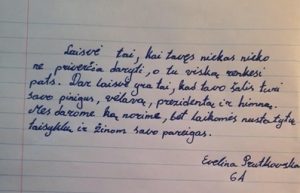 Laisvė tai, kai tavęs niekas nieko
ne priverčia daryti, o tu viską renkiesi
pats. Dar laisvė yra tai, kad tavo šalis turi
savo pinigus, vėliavą, prezidentą ir himną.
Mes darome ką norime, bet laikomės nustatytų
taisyklių ir žinom savo pareigas.
Evelina
6A